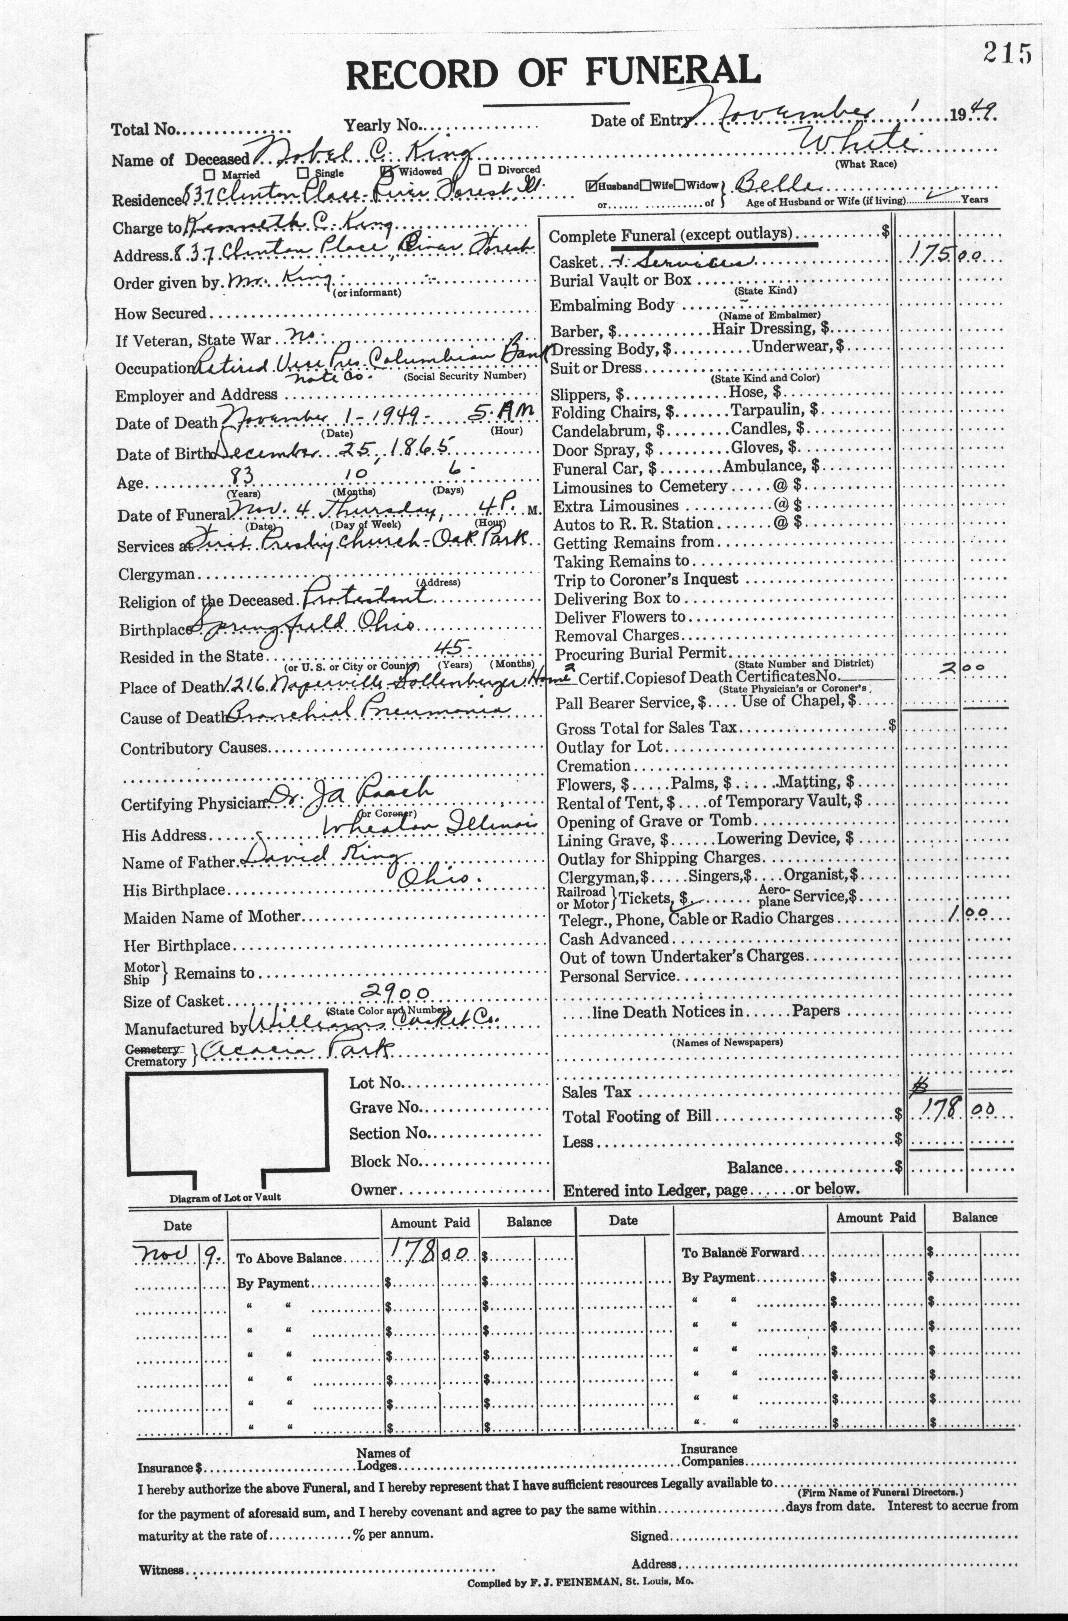 215
RECORD OF FUNERAL
Total No. Yearly No. Date of Entry November 1 1949
Name of Deceased Nobel C. King White
(What Race)
Married Single Widowed Divorced
Residence 837 Clinton Place River Forest, Ill. Husband Wife Widow } Belle
or of Age of Husband or Wife (if living) Years
Charge to Kenneth C. King
Address 837 Clinton Place, River Forest
Order given by Mr. King
(or informant)
How Secured
If Veteran, State War no.
Occupation Retired Vice Pres. Columbian Bank
note Co. (Social Security Number)
Employer and Address
Date of Death November 1-1949- 5 AM
(Date) (Hour)
Date of Birth December 25, 1865
Age 83 10 6
(Years) (Months) (Days)
Date of Funeral Nov. 4 Thursday, 4 P. M.
(Date) (Day of Week) (Hour)
Services at First Presby Church - Oak Park
Clergyman
(Address)
Religion of the Deceased Protestant
Birthplace Springfield Ohio
Resided in the State 45
(or U. S. or City or County) (Years) (Months)
Place of Death 1216 Naperville Gollenberger Home
Cause of Death Bronchial Pneumonia
Contributory Causes
Certifying Physician Dr. JA
(or Coroner)
His Address Wheaton Illinois
Name of Father David King
His Birthplace Ohio.
Maiden Name of Mother
Her Birthplace
Motor Ship } Remains to
Size of Casket 2900
(State Color and Number)
Manufactured by Williams Casket Co.
Cemetery
Crematory } Acacia Park
Diagram of Lot or Vault
Lot No.
Grave No.
Section No.
Block No.
Owner
Complete Funeral (except outlays) $
Casket + Services 175 00
Burial Vault or Box
(State Kind)
Embalming Body
(Name of Embalmer)
Barber, $ Hair Dressing, $
Dressing Body, $ Underwear, $
Suit or Dress
(State Kind and Color)
Slippers, $ Hose, $
Folding Chairs, $ Tarpaulin, $
Candelabrum, $ Candles, $
Door Spray, $ Gloves, $
Funeral Car, $ Ambulance, $
Limousines to Cemetery @ $
Extra Limousines @ $
Autos to R. R. Station @ $
Getting Remains from
Taking Remains to
Trip to Coroner's Inquest
Delivering Box to
Deliver Flowers to
Removal Charges
Procuring Burial Permit
(State Number and District)
2 Certif. Copies of Death Certificates No. 2 00
(State Physician's or Coroner's)
Pall Bearer Service, $ Use of Chapel, $
Gross Total for Sales Tax $
Outlay for Lot
Cremation
Flowers, $ Palms, $ Matting, $
Rental of Tent, $ of Temporary Vault, $
Opening of Grave or Tomb
Lining Grave, $ Lowering Device, $
Outlay for Shipping Charges
Clergyman, $ Singers, $ Organist, $
Railroad or Motor } Tickets, $ Aeroplane Service, $
Telegr., Phone, Cable or Radio Charges 1 00
Cash Advanced
Out of town Undertaker's Charges
Personal Service
line Death Notices in Papers
(Names of Newspapers)
Sales Tax $
Total Footing of Bill $ 178 00
Less $
Balance $
Entered into Ledger, page or below.
Date Amount Paid Balance Date Amount Paid Balance
Nov 9. To Above Balance 178 00 $ To Balance Forward $
By Payment $ $ By Payment $ $
“ “ $ $ “ “ $ $
“ “ $ $ “ “ $ $
“ “ $ $ “ “ $ $
“ “ $ $ “ “ $ $
“ “ $ $ “ “ $ $
“ “ $ $ “ “ $ $
Insurance $ Names of Lodges Insurance Companies
I hereby authorize the above Funeral, and I hereby represent that I have sufficient resources Legally available to
(Firm Name of Funeral Directors.)
for the payment of aforesaid sum, and I hereby covenant and agree to pay the same within days from date. Interest to accrue from
maturity at the rate of % per annum. Signed
Witness Address
Compiled by F. J. FEINEMAN, St. Louis, Mo.